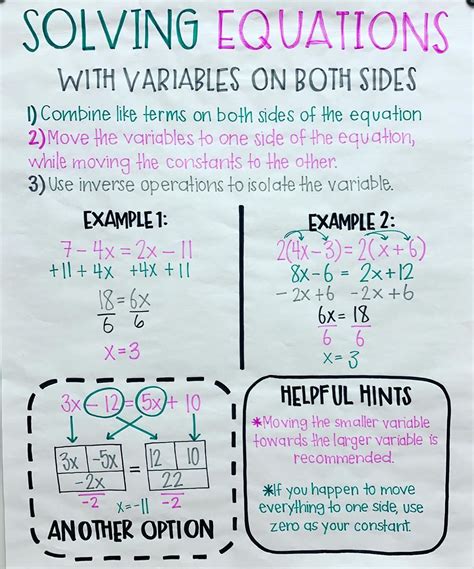 SOLVING EQUATIONS
WITH VARIABLES ON BOTH SIDES
1) Combine like terms on both sides of the equation
2) Move the variables to one side of the equation,
while moving the constants to the other.
3) Use inverse operations to isolate the variable.
EXAMPLE 1:
7 - 4x = 2x - 11
+11 + 4x +4x + 11
18 = 6x
6 6
x = 3
EXAMPLE 2:
2(4x - 3) = 2(x + 6)
8x - 6 = 2x + 12
- 2x + 6 - 2x + 6
6x = 18
6 6
x = 3
3x - 12 = 5x + 10
3x -5x = 12 10
-2x 22
-2 x = -11 -2
ANOTHER OPTION
HELPFUL HINTS
*Moving the smaller variable
towards the larger variable is
recommended.
*If you happen to move
everything to one side, use
zero as your constant.